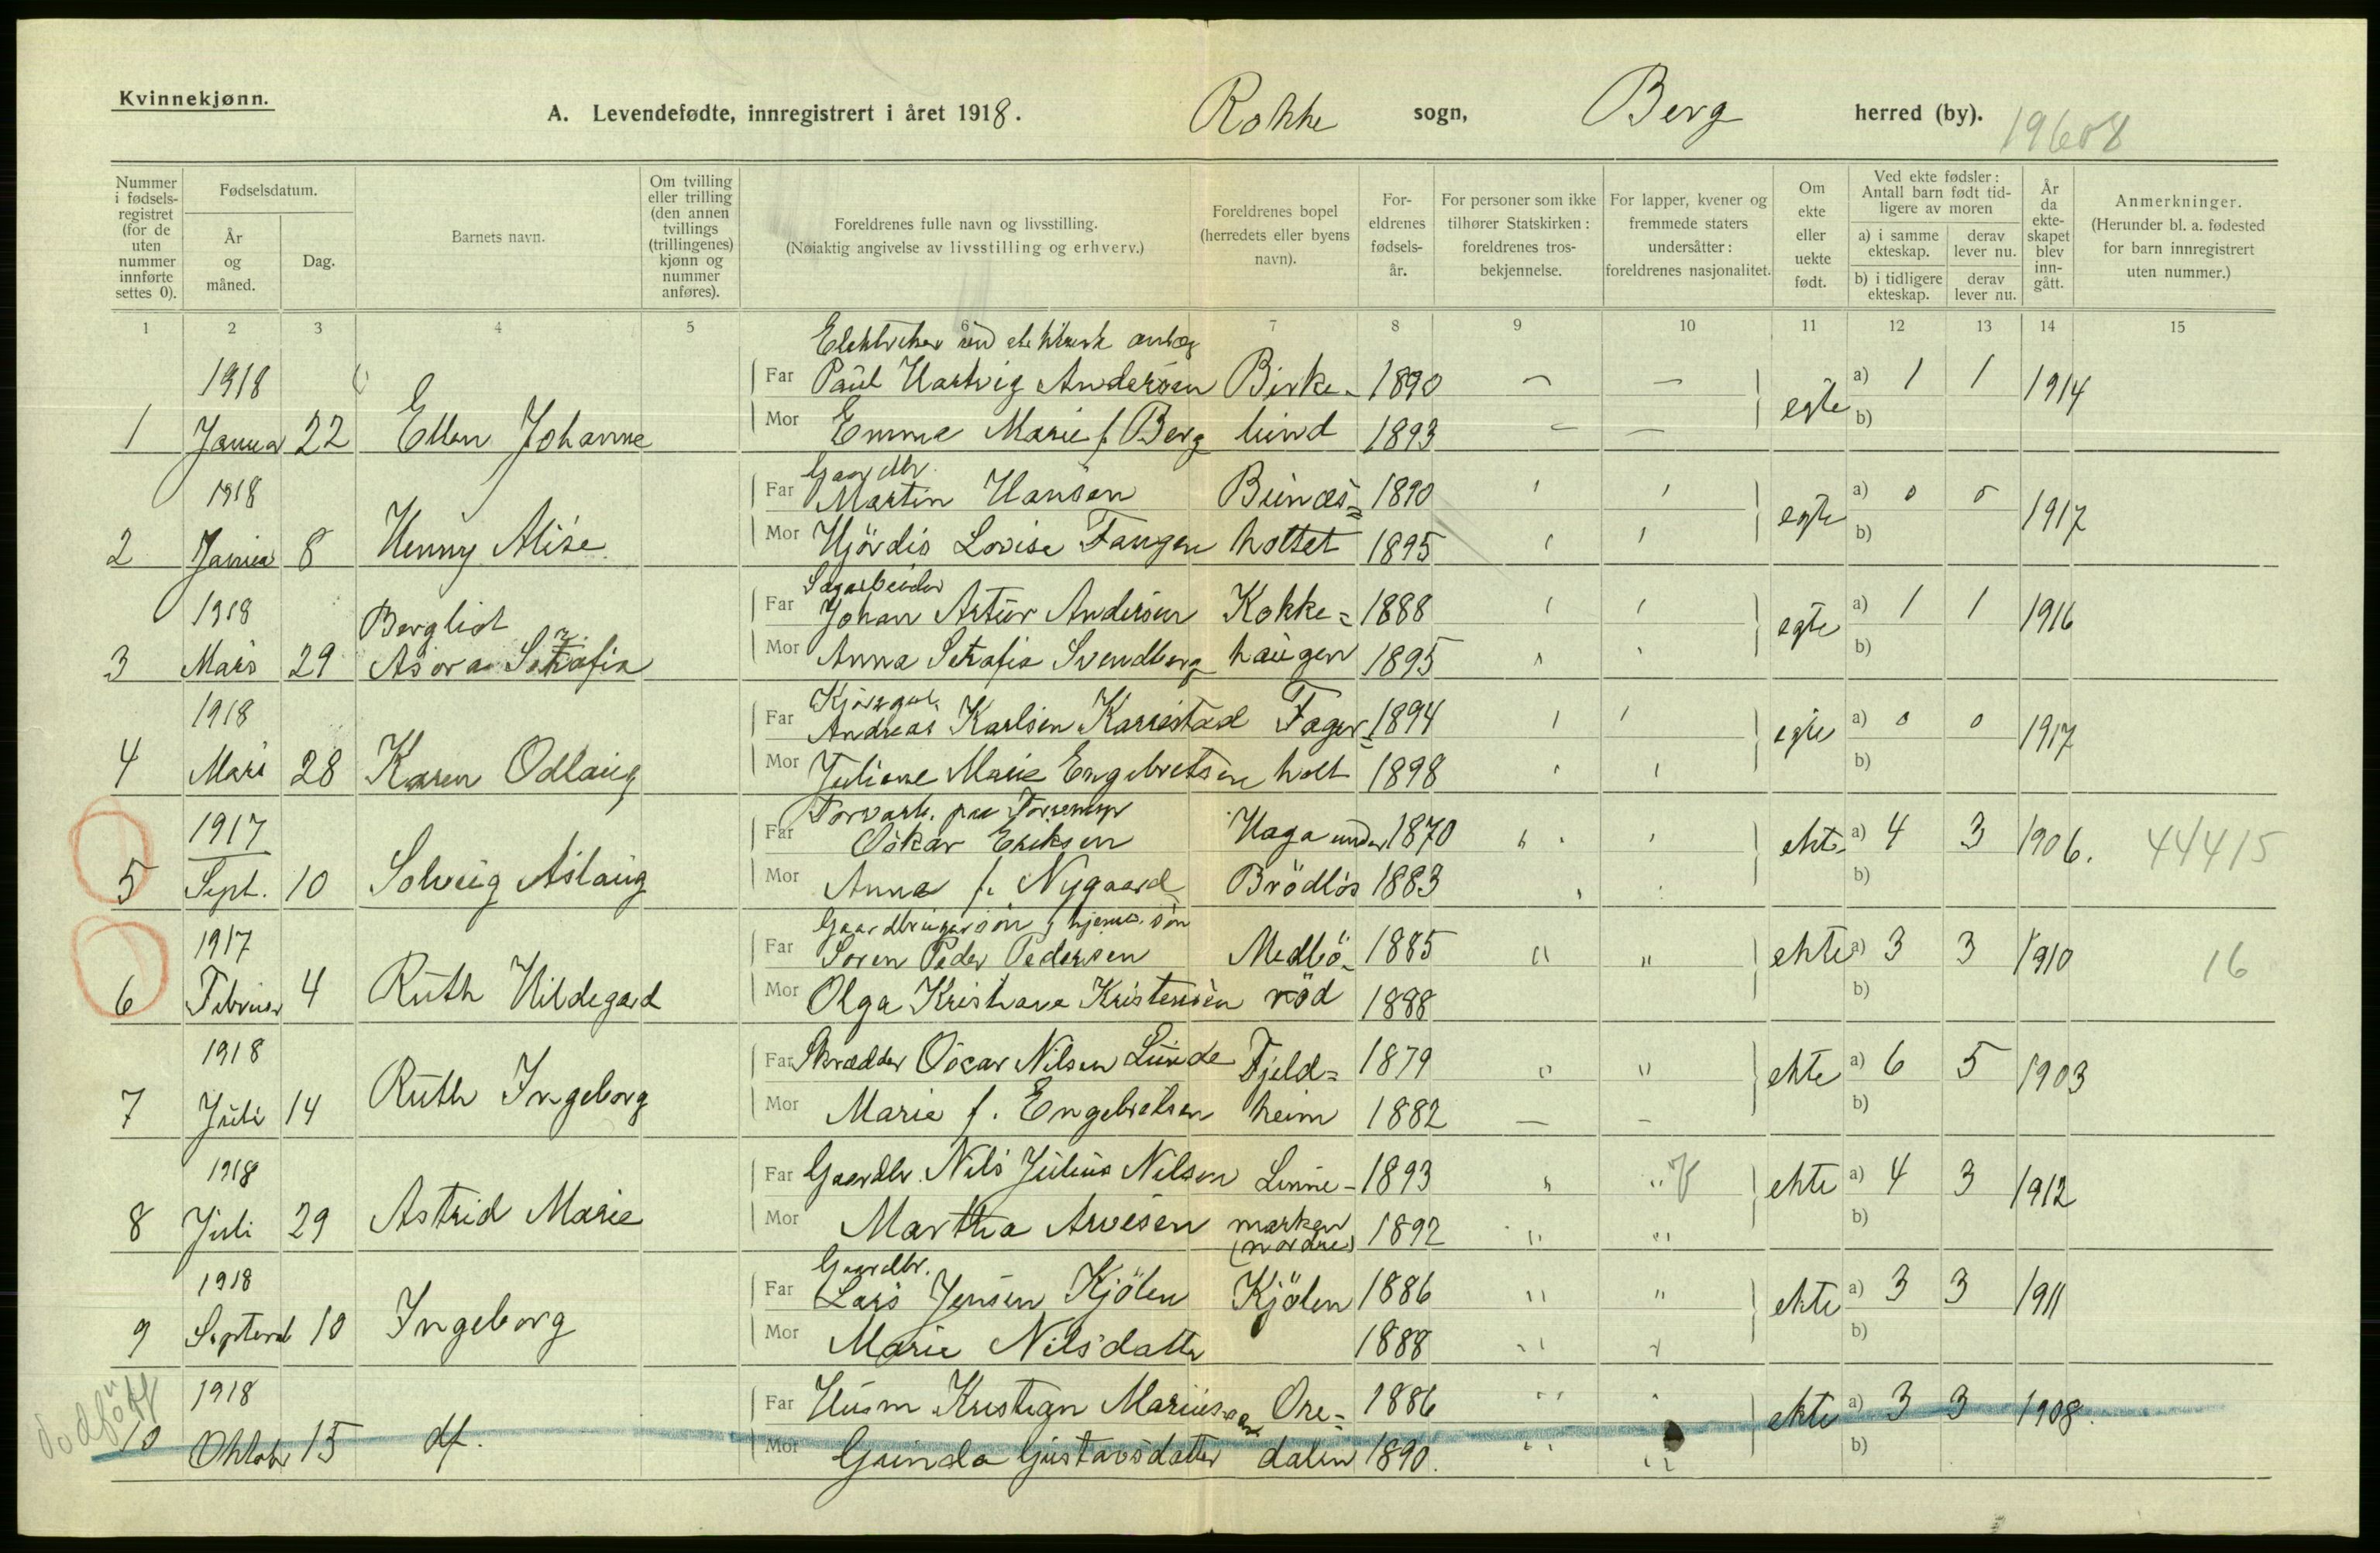 Kvinnekjønn.
A. Levendefødte, innregistrert i året 1918. Rokke sogn, Berg herred (by). 19608
Nummer i fødsels-registret (for de uten nummer innførte settes 0).
Fødselsdatum.
År og måned.
Dag.
Barnets navn.
Om tvilling eller trilling (den annen tvillings (trillingenes) kjønn og nummer anføres).
Foreldrenes fulle navn og livsstilling.
(Nøiaktig angivelse av livsstilling og erhverv.)
Foreldrenes bopel (herredets eller byens navn).
For-eldrenes fødsels-år.
For personer som ikke tilhører Statskirken: foreldrenes tros-bekjennelse.
For lapper, kvener og fremmede staters undersåtter: foreldrenes nasjonalitet.
Om ekte eller uekte født.
Ved ekte fødsler: Antall barn født tid-ligere av moren
a) i samme ekteskap.
derav lever nu.
b) i tidligere ekteskap.
derav lever nu.
År da ekte-skapet blev inn-gått.
Anmerkninger.
(Herunder bl. a. fødested for barn innregistrert uten nummer.)
1 2 3 4 5 6 7 8 9 10 11 12 13 14 15
1918 Far Paul Hartvig Andersen Birke- 1890 — — egte a) 1 1 1914
1 Januar 22 Ellen Johanne Mor Emma Marie f. Berg lund 1893 — — b)
Gaardbr.
1918 Far Martin Hansen Bunæs= 1890 egte a) 0 0 1917
2 Januar 8 Henny Alise Mor Hjördis Lovise Fangen holtet 1895 b)
Sagarbeider
1918 Bergliot Far Johan Artur Andersen Kokke= 1888 egte a) 1 1 1916
3 Mars 29 Asora Serafia Mor Anna Serafia Svendberg haugen 1895 b)
1918 Far Andreas Karlsen Karrestad Fager= 1894 egte a) 0 0 1917
4 Mars 28 Karen Odlaug Mor Juliane Marie Engebretsen holt 1898 b)
1917 Far Oskar Eriksen Haga under 1870 ekte a) 4 3 1906. 44415
5 Sept. 10 Solveig Aslaug Mor Anna f. Nygaard Brödlös 1883 b)
Gaardbrugersön, hjemmev. sön
1917 Far Soren Peder Pedersen Medbö- 1885 " " ekte a) 3 3 1910 16
6 Februar 4 Ruth Hildegard Mor Olga Kristiane Kristensen röd 1888 b)
1918 Far Skrædder Oscar Nilsen Lunde Fjeld= 1879 " " ekte a) 6 5 1903
7 Juli 14 Ruth Ingeborg Mor Marie f. Engebretsen heim 1882 — — b)
1918 Far Gaardbr. Nils Julius Nilsen Linne- 1893 " " V ekte a) 4 3 1912
8 Juli 29 Astrid Marie Mor Martha Arvesen marken (nordre) 1892 " " b)
Gaardbr.
1918 Far Lars Jensen Kjölen Kjölen 1886 " " ekte a) 3 3 1911
9 Septemb 10 Ingeborg Mor Marie Nilsdatter 1888 " " b)
dodfödt
1918 Far Husm Kristian Mariussen Ore= 1886 " " ekte a) 3 3 1908.
10 Oktober 15 df. Mor Gunda Gustavsdatter dalen 1890. " " b)